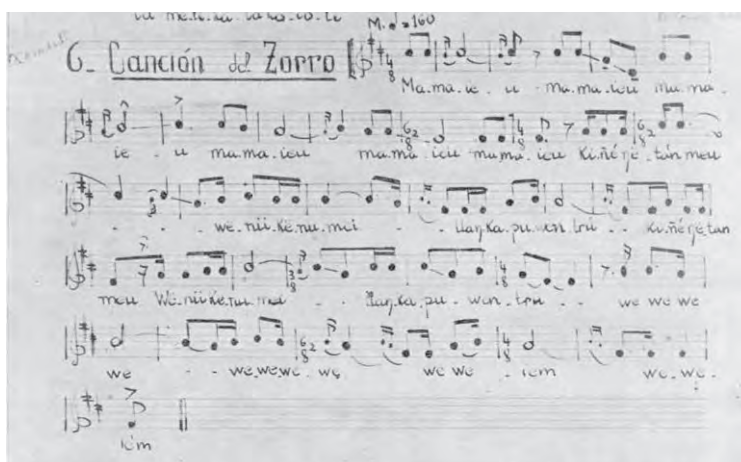 6_ Canción del Zorro
M. ♩=160
Ma.ma.ie. u ma.ma.ieu ma.ma.
ie . u ma.ma.ieu ma.ma.ieu ma.ma.ieu Ki.ñé.ŋe.tán meu
we.nii.ke.nu.mei llaŋ.ka.pu.wen.tru . . Ki.ñé.ŋe.tan
meu We.nii.ke.nu.mei . . llaŋ.ka.pu.wen.tru . . we we we
we . . we.we.we.we we we . iem we.we.
iem